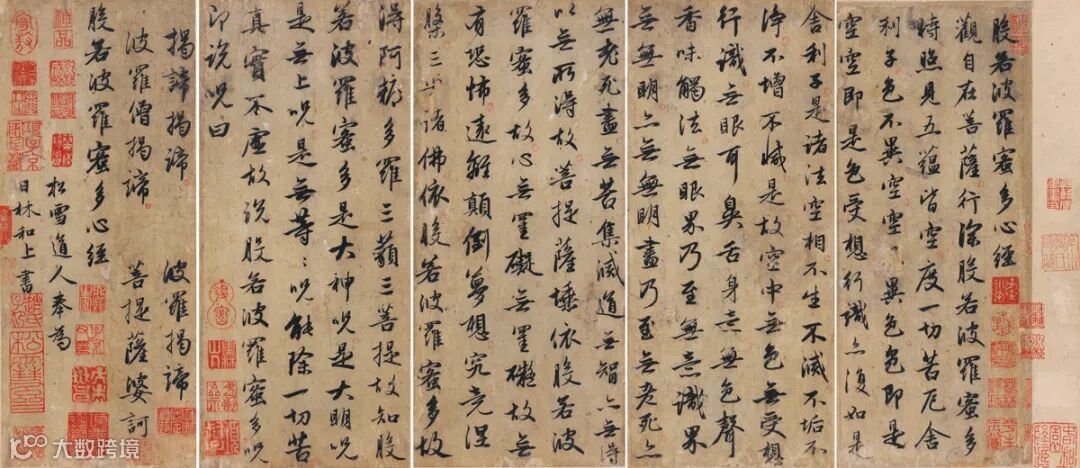 般若波羅蜜多心經
觀自在菩薩行深般若波羅蜜多
時照見五蘊皆空度一切苦厄舍
利子色不異空空不異色色即是
空空即是色受想行識亦復如是
舍利子是諸法空相不生不滅不垢不
淨不增不減是故空中無色無受想
行識無眼耳鼻舌身意無色聲
香味觸法無眼界乃至無意識界
無無明亦無無明盡乃至無老死亦
無老死盡無苦集滅道無智亦無得
以無所得故菩提薩埵依般若波
羅蜜多故心無罣礙無罣礙故無
有恐怖遠離顛倒夢想究竟涅
槃三世諸佛依般若波羅蜜多故
得阿耨多羅三藐三菩提故知般
若波羅蜜多是大神呪是大明呪
是無上呪是無等〻呪能除一切苦
真實不虛故說般若波羅蜜多呪
即說呪曰
揭諦揭諦 波羅揭諦
波羅僧揭諦 菩提薩婆訶
般若波羅蜜多心經
松雪道人奉為
日林和上書
大数跨境